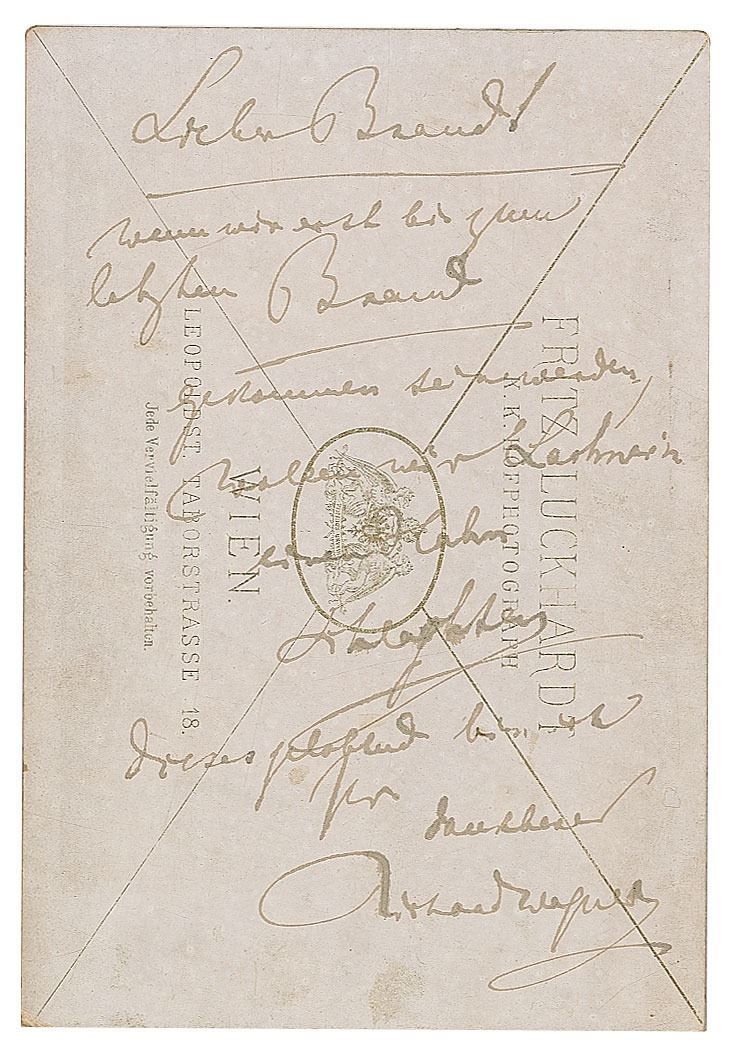 Lieber Brandt
wenn wir erst bis zum
letzten Brand
gekommen sein werden,
wollen wir
einen
schlachten
dieses gelobend bin ich
Ihr
dankbarer
Richard Wagner
FRITZ LUCKHARDT
K. K. HOFPHOTOGRAPH
WIEN.
LEOPOLDST. TABORSTRASSE 18.
Jede Vervielfältigung vorbehalten.